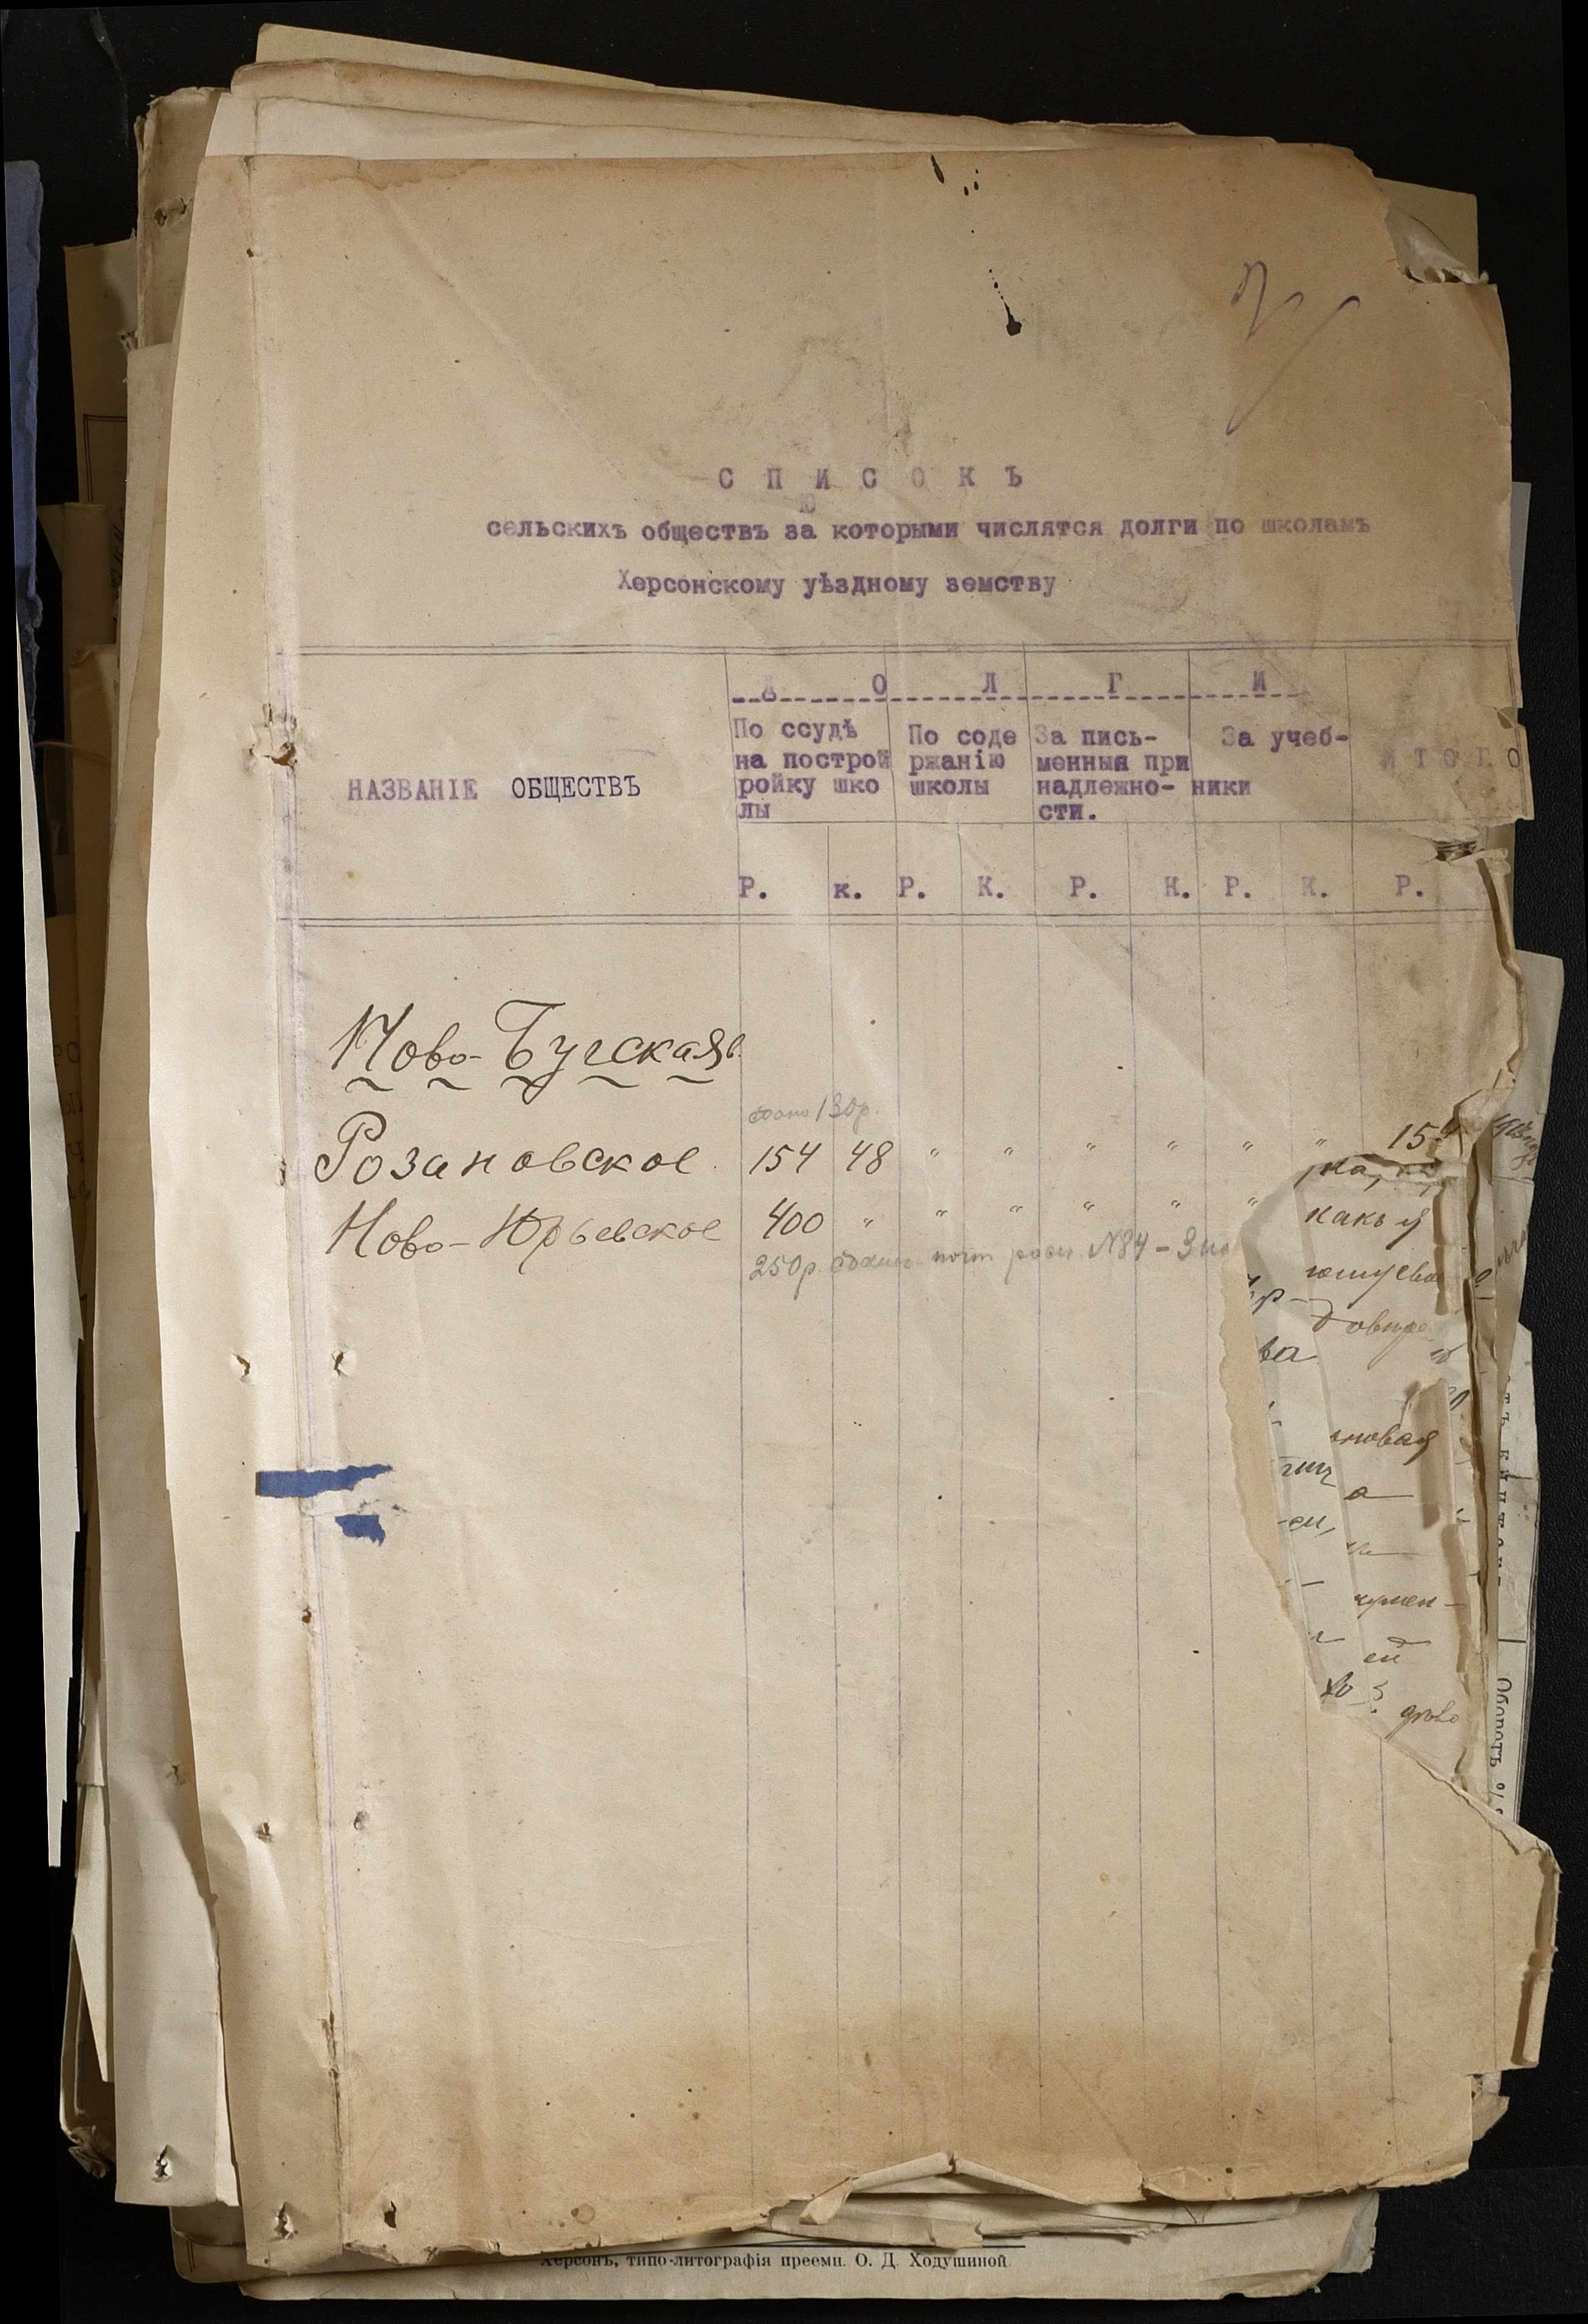 СПИСОКЪ
сельскихъ обществъ за которыми числятся долги по школамъ
Херсонскому уѣздному земству
НАЗВАНІЕ ОБЩЕСТВЪ
ДОЛГИ
По ссудѣ
на построй
ройку шко
лы
По соде
ржанію
школы
За пись-
менныя при
надлежно-
сти.
За учеб-
ники
ИТОГО
Р. к. Р. К. Р. К. Р. К. Р.
Ново-Бугская в.
130р.
Розановское 154 48 " " " " " " 15
Ново-Юрьевское 400 " " " " " "
250р. №84 - 3
какъ
новая
Оборотъ %
Херсонъ, типо-литографія преемн. О. Д. Ходушиной.